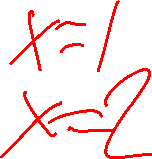 x=1
x=2